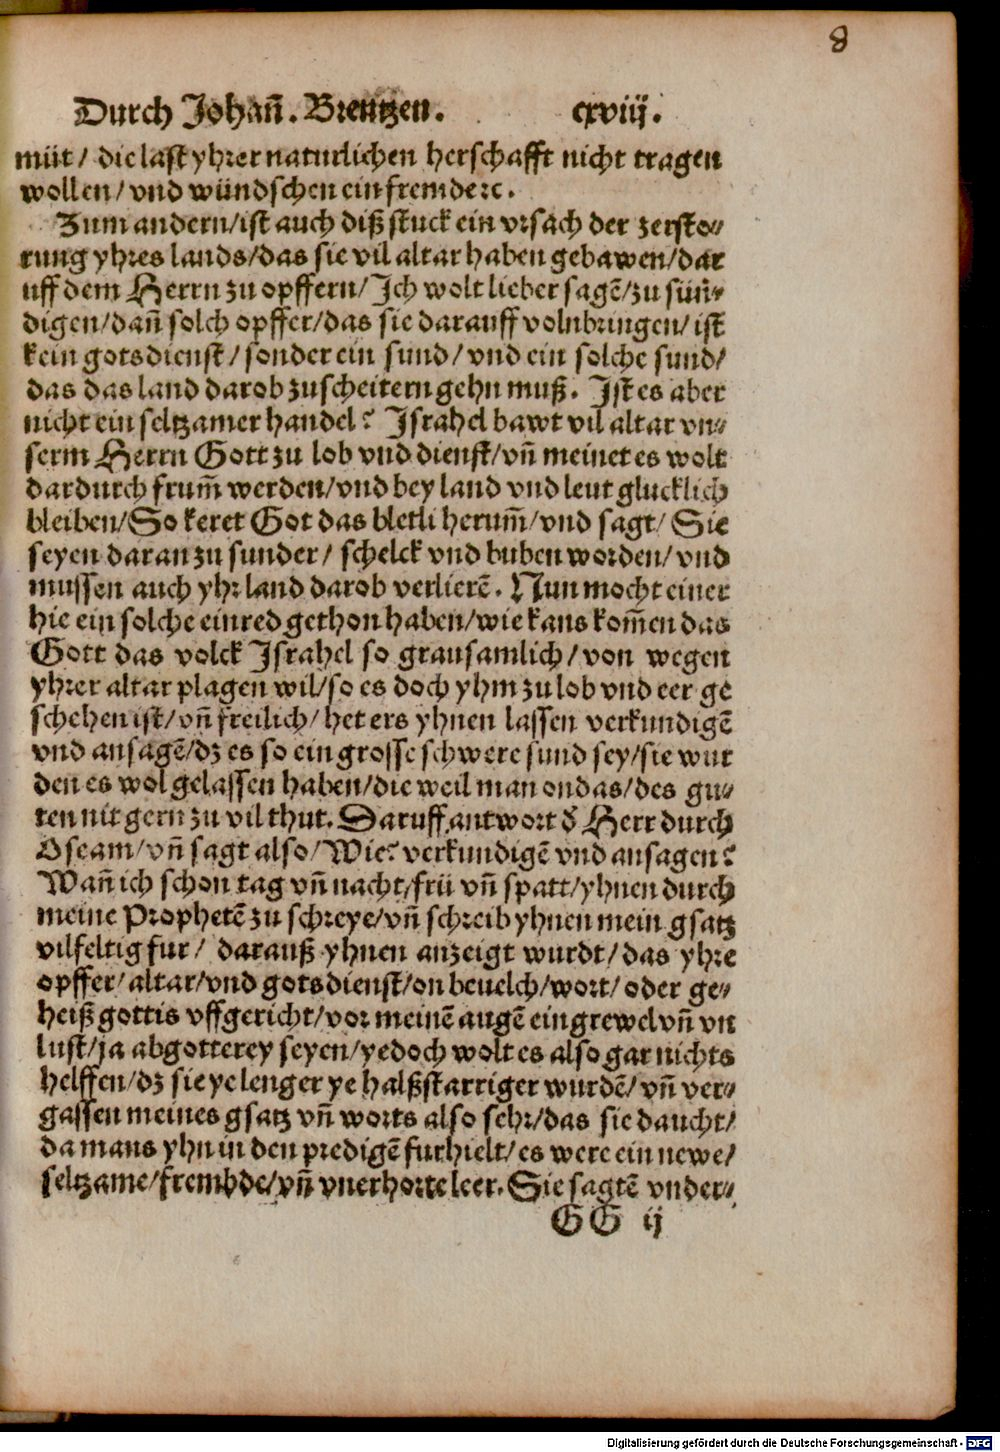 8
Durch Johañ. Brentzen. cxviij.
müt / die last yhrer naturlichen herschafft nicht tragen
wollen / vnd wündschen ein fremde ꝛc.
Zum andern / ist auch diß stuck ein vrsach der zersto⸗
rung yhres lands / das sie vil altar haben gebawen / dar
uff dem Herrn zu opffern / Ich wolt lieber sagē / zu sün⸗
digen / dañ solch opffer / das sie darauff volnbringen / ist
kein gotsdienst / sonder ein sund / vnd ein solche sund /
das das land darob zuscheitern gehn muß. Ist es aber
nicht ein seltzamer handel? Israhel bawt vil altar vn⸗
serm Herrn Gott zu lob vnd dienst / vñ meinet es wolt
dardurch frum̄ werden / vnd bey land vnd leut glucklich
bleiben / So keret Got das bletli herum̄ / vnd sagt / Sie
seyen daran zu sunder / schelck vnd buben worden / vnd
mussen auch yhr land darob verlierē. Nun mocht einer
hie ein solche einred gethon haben / wie kans kom̄en das
Gott das volck Israhel so grausamlich / von wegen
yhrer altar plagen wil / so es doch yhm zu lob vnd eer ge
schehen ist / vñ freilich / het ers yhnen lassen verkundigē
vnd ansagē / dz es so ein grosse schwere sund sey / sie wur
den es wol gelassen haben / die weil man on das / des gu⸗
ten nit gern zu vil thut. Daruff antwort d̕ Herr durch
Oseam / vñ sagt also / Wie? verkundigē vnd ansagen?
Wañ ich schon tag vñ nacht / frü vñ spatt / yhnen durch
meine Prophetē zu schreye / vñ schreib yhnen mein gsatz
vilfeltig fur / darauß yhnen anzeigt wurdt / das yhre
opffer / altar / vnd gotsdienst / on beuelch / wort / oder ge⸗
heiß gottis vffgericht / vor meinē augē ein grewel vñ vn
lust / ja abgotterey seyen / yedoch wolt es also gar nichts
helffen / dz sie ye lenger ye halßstarriger wurdē / vñ ver⸗
gassen meines gsatz vñ worts also sehr / das sie daucht /
da mans yhn in den predigē furhielt / es were ein newe /
seltzame / frembde / vñ vnerhorte leer. Sie sagtē vnder⸗
GG ij
Digitalisierung gefördert durch die Deutsche Forschungsgemeinschaft - DFG